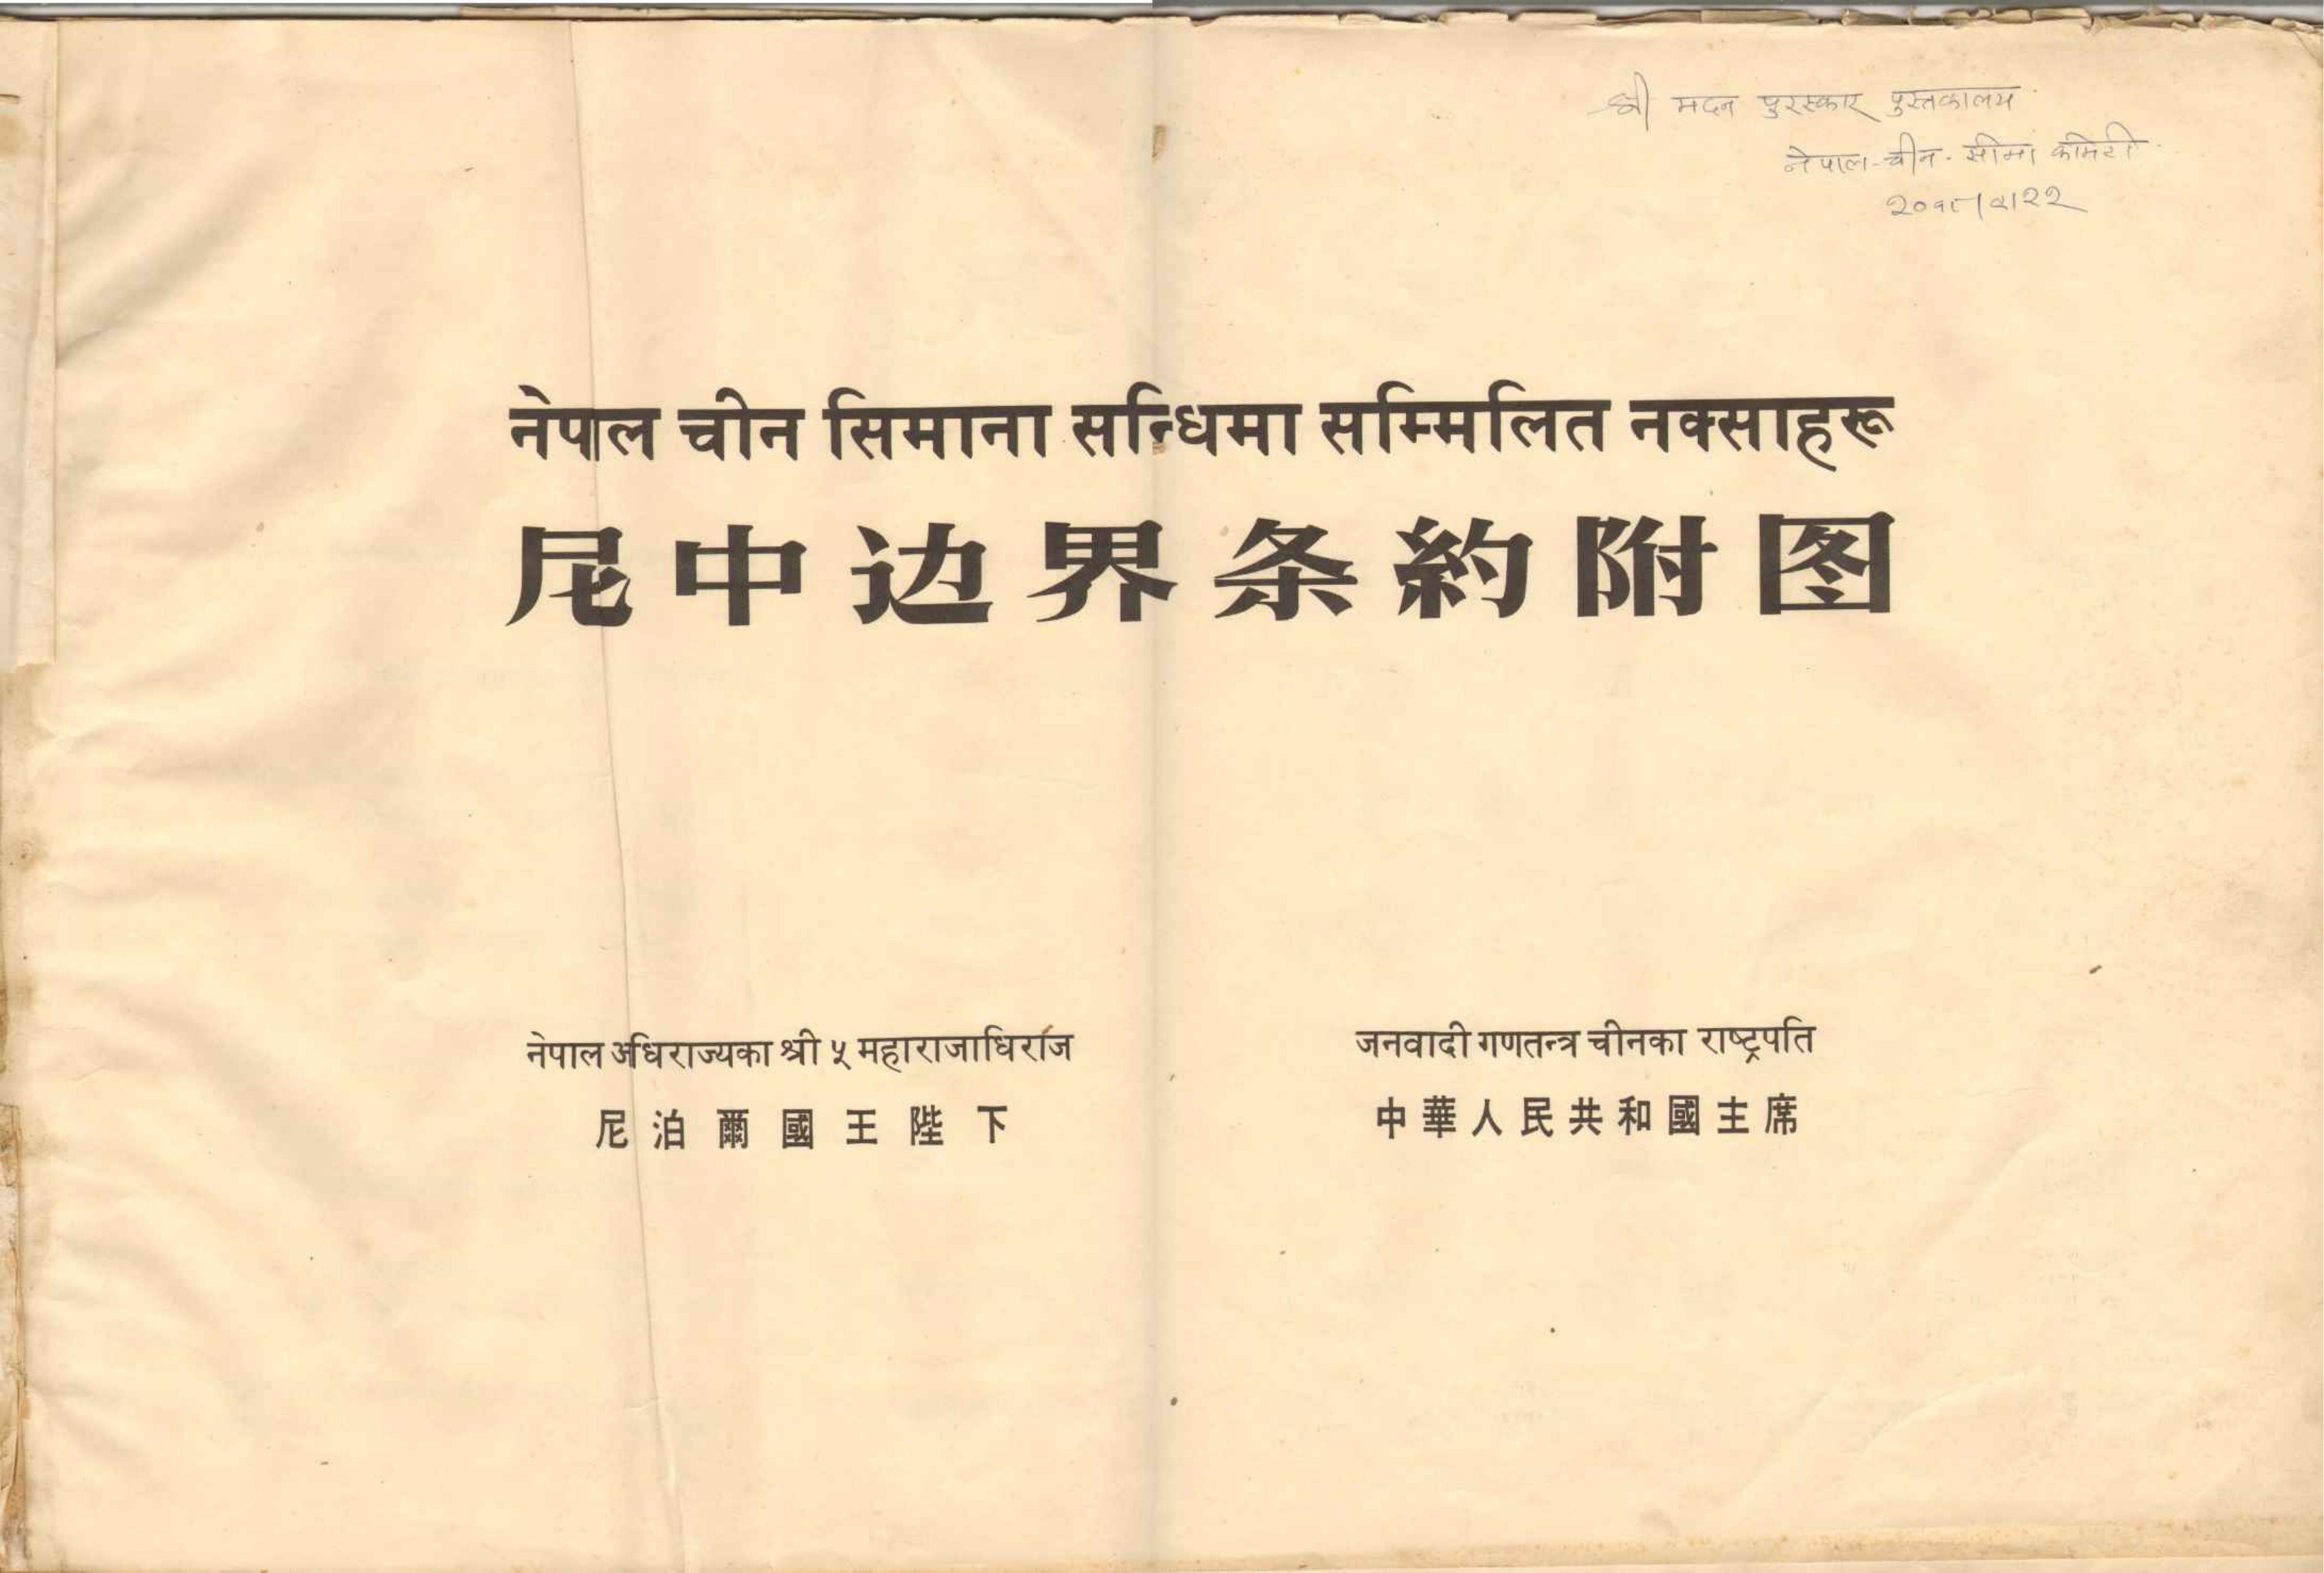 श्री मदन पुरस्कार पुस्तकालय
नेपाल-चीन-सीमा कमिटी
नेपाल चीन सिमाना सन्धिमा सम्मिलित नक्साहरू
尼中边界条約附图
नेपाल अधिराज्यका श्री ५ महाराजाधिराज
尼泊爾國王陛下
जनवादी गणतन्त्र चीनका राष्ट्रपति
中華人民共和國主席